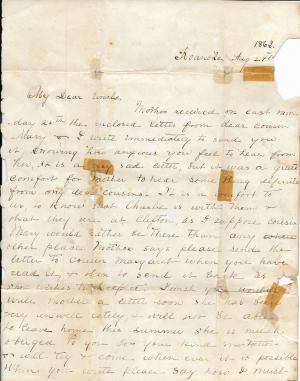 1863.
Roanoke, Aug 20th
My Dear Uncle,
Mother received on last
day the inclosed letter from dear cousin
Mary & I write immediately to send you
it knowing how anxious you feel to hear from
it is a very sad letter, but it was a great
comfort for Mother to hear some thing definite
from our dear cousins. It is a comfort to
us to know that Charlie is with & that
they are at Clifton, as I suppose cousin
Mary would rather be there than any where
other place. Mother says please send the
letter to Cousin Margaret when you have
read it, & then to send it back as
she wishes to keep it. I wish you would
write Mother a letter soon she has been
very unwell lately & will not be able
to leave home this summer she is much
obliged to you for your kind invitation
& will try & come when ever it is possible
When you write please say how I must